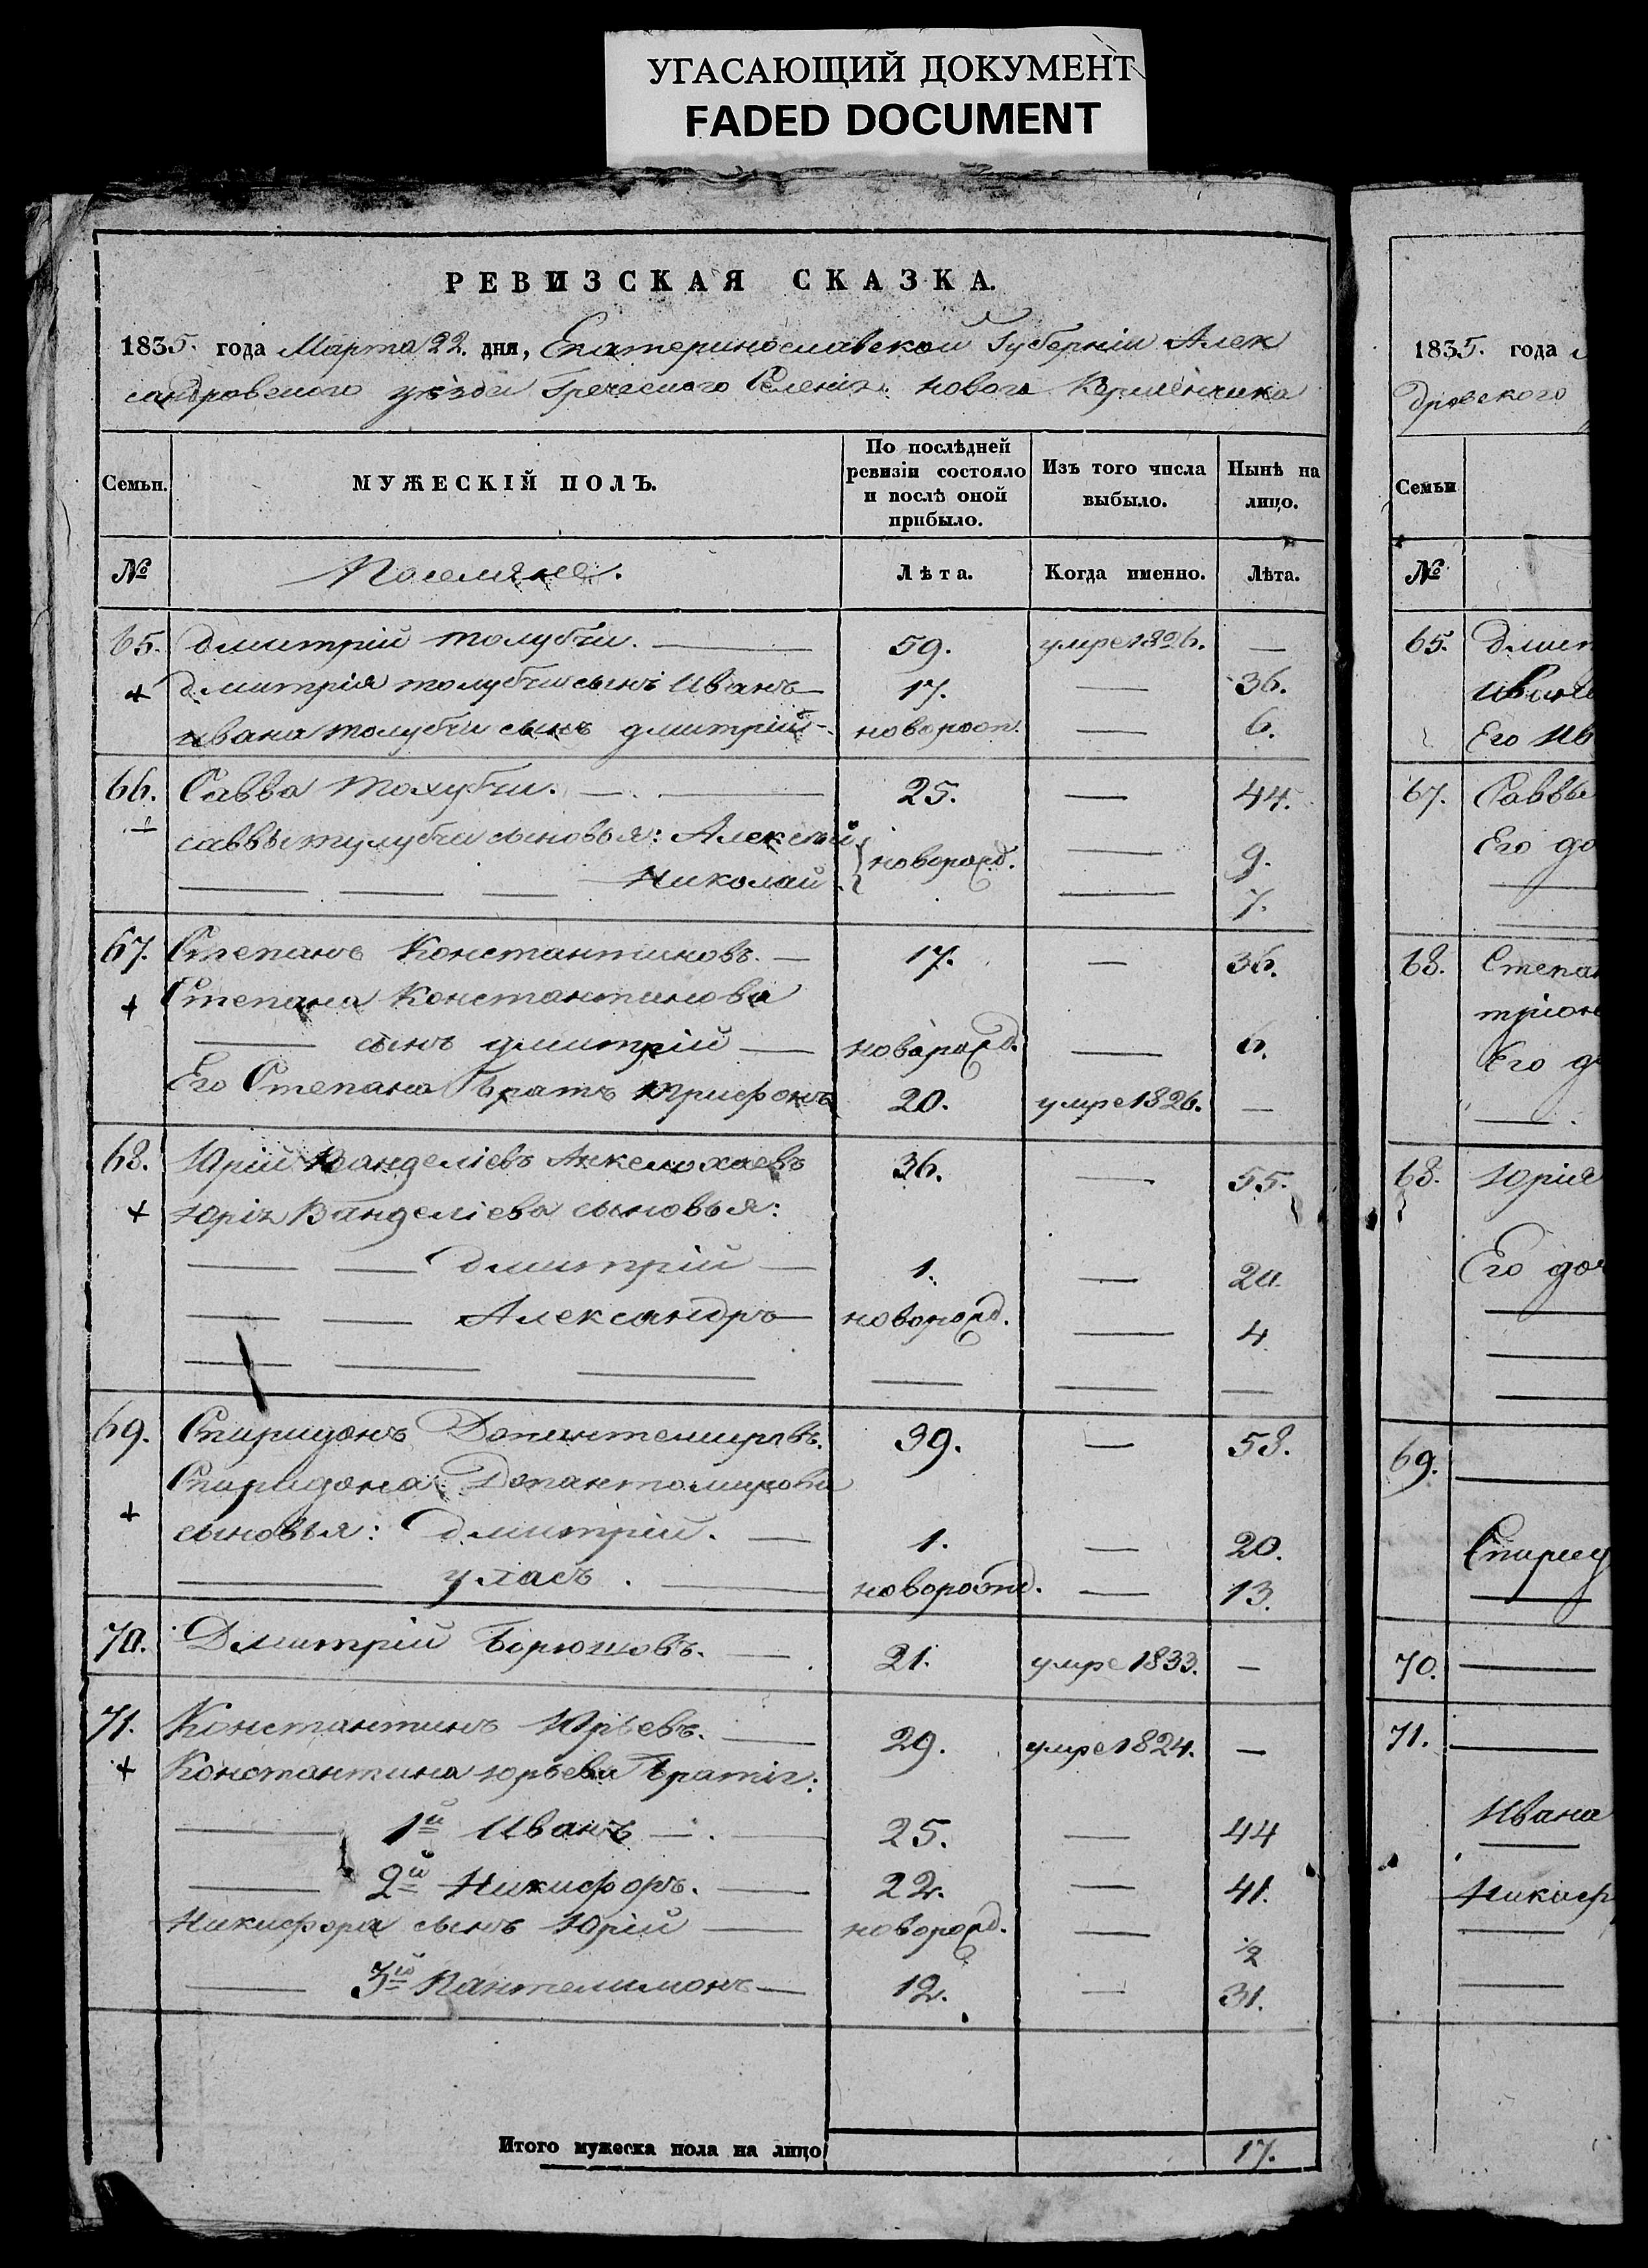 УГАСАЮЩИЙ ДОКУМЕНТ
FADED DOCUMENT
РЕВИЗСКАЯ СКАЗКА.
1835. года Марта 22. дня, Екатеринославской Губерніи Алек
сандровского уѣзда Греческого Селенія Нового Керменчика
Семьи. МУЖЕСКІЙ ПОЛЪ. По послѣдней ревизіи состояло и послѣ оной прибыло. Изъ того числа выбыло. Нынѣ на лицо.
№ Поселяне. Лѣта. Когда именно. Лѣта.
65. Дмитрій Толубчи. — 59. умре 1826. —
+ Дмитрія Толубчи сынъ Иванъ — 17. — 36.
Ивана Толубчи сынъ Дмитрій — новорож. — 6.
66. Савва Толубчи. — 25. — 44.
+ Саввы тулубчи сыновья: Алексѣй новорожд. — 9.
Николай — 7.
67. Степанъ Константиновъ. — 17. — 36.
+ Степана Константинова
— сынъ Дмитрій — новорожд. — 6.
Его Степана Братъ Трифонъ 20. умре 1826. —
68. Юрій Ванделіевъ 36. — 55.
+ Юрія Ванделіева сыновья:
— — Дмитрій — 1. — 20.
— — Александръ — новорожд. — 4
— — — — — —
69. Спиридонъ 39. — 58.
Спиридона
+ сыновья: Дмитрій. — 1. — 20.
— уласъ. — новорожд. — 13.
70. Дмитрій — 21. умре 1833. —
71. Константинъ Юрьевъ. — 29. умре 1824. —
+ Константина Юрьева Братія:
— 1й Иванъ — 25. — 44
— 2й Никифоръ. — 22. — 41.
Никифора сынъ Юрій — новорожд. — 1/2
— 3й Пантелимонъ — 12. — 31.
Итого мужеска пола на лицо 17.
1835. года
дровского
Семьи
№
65.
Его
67. Саввы
Его
68.
Его
68. Юрія
Его
69. —
70. —
71. —
Ивана